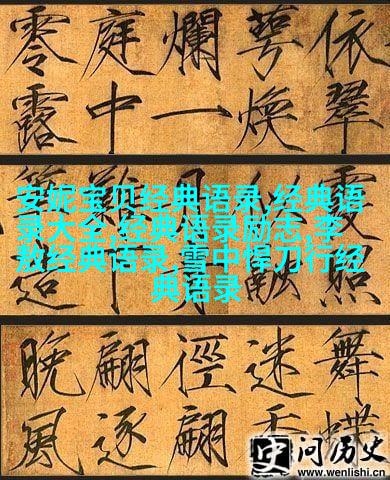 依翠
萼煥
爛一
庭中
零露
安妮宝贝经典语录,经典语
录大全,经典语录励志,李
敖经典语录,雪中悍刀行经
典语录
照
舞蝶
迷香
徑翩
翩逐
晚風
问历史
www.wenlishi.cn